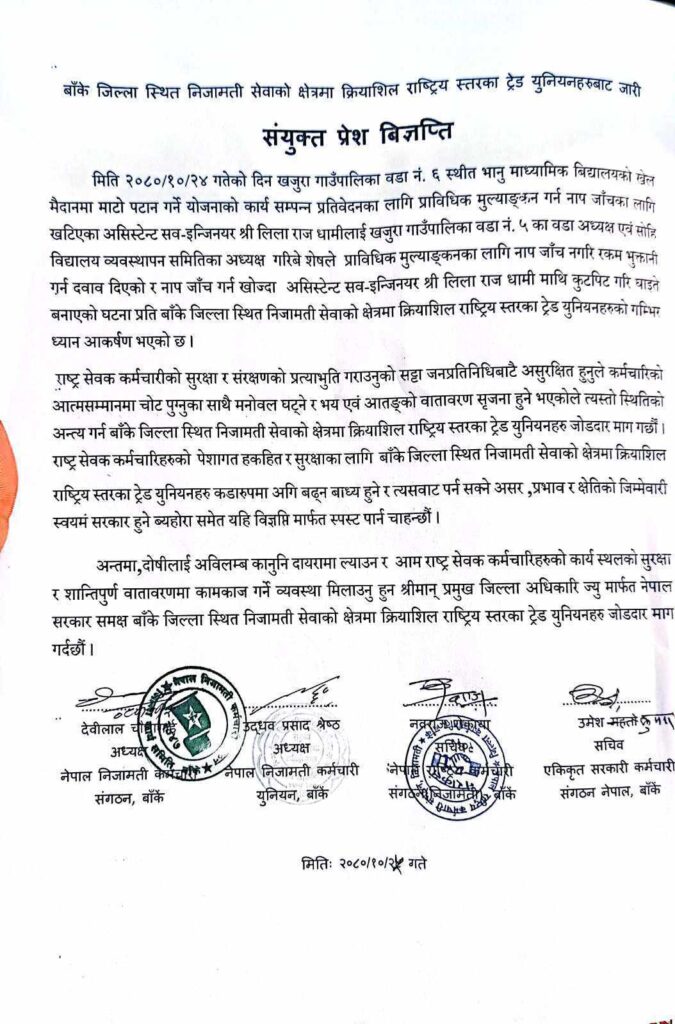 बाँके जिल्ला स्थित निजामती सेवाको क्षेत्रमा क्रियाशिल राष्ट्रिय स्तरका ट्रेड युनियनहरुबाट जारी
संयुक्त प्रेश बिज्ञप्ति
मिति २०८०/१०/२४ गतेको दिन खजुरा गाउँपालिका वडा नं. ६ स्थीत भानु माध्यामिक बिद्यालयको खेल
मैदानमा माटो पटान गर्ने योजनाको कार्य सम्पन्न प्रतिवेदनका लागि प्राविधिक मुल्याङ्कन गर्न नाप जाँचका लागि
खटिएका असिस्टेन्ट सव-इन्जिनयर श्री लिला राज धामीलाई खजुरा गाउँपालिका वडा नं. ५ का वडा अध्यक्ष एवं सोहि
विद्यालय व्यवस्थापन समितिका अध्यक्ष गरिबे शेषले प्राविधिक मुल्याङ्कनका लागि नाप जाँच नगरि रकम भुक्तानी
गर्न दवाव दिएको र नाप जाँच गर्न खोज्दा असिस्टेन्ट सव-इन्जिनयर श्री लिला राज धामी माथि कुटपिट गरि घाइते
बनाएको घटना प्रति बाँके जिल्ला स्थित निजामती सेवाको क्षेत्रमा क्रियाशिल राष्ट्रिय स्तरका ट्रेड युनियनहरुको गम्भिर
ध्यान आकर्षण भएको छ।
राष्ट्र सेवक कर्मचारीको सुरक्षा र संरक्षणको प्रत्याभुति गराउनुको सट्टा जनप्रतिनिधिबाटै असुरक्षित हुनुले कर्मचारिको
आत्मसम्मानमा चोट पुग्नुका साथै मनोवल घट्ने र भय एवं आतङ्को वातावरण सृजना हुने भएकोले त्यस्तो स्थितिको
अन्त्य गर्न बाँके जिल्ला स्थित निजामती सेवाको क्षेत्रमा क्रियाशिल राष्ट्रिय स्तरका ट्रेड युनियनहरु जोडदार माग गर्छौं।
राष्ट्र सेवक कर्मचारिहरुको पेशागत हकहित र सुरक्षाका लागि बाँके जिल्ला स्थित निजामती सेवाको क्षेत्रमा क्रियाशिल
राष्ट्रिय स्तरका ट्रेड युनियनहरु कडारुपमा अगि बढ्न बाध्य हुने र त्यसवाट पर्न सक्ने असर ,प्रभाव र क्षेतिको जिम्मेवारी
स्वयमं सरकार हुने ब्यहोरा समेत यहि विज्ञप्ति मार्फत स्पस्ट पार्न चाहन्छौं।
अन्तमा,दोषीलाई अविलम्ब कानुनि दायरामा ल्याउन र आम राष्ट्र सेवक कर्मचारिहरुको कार्य स्थलको सुरक्षा
र शान्तिपुर्ण वातावरणमा कामकाज गर्ने व्यवस्था मिलाउनु हुन श्रीमान् प्रमुख जिल्ला अधिकारि ज्यु मार्फत नेपाल
सरकार समक्ष बाँके जिल्ला स्थित निजामती सेवाको क्षेत्रमा क्रियाशिल राष्ट्रिय स्तरका ट्रेड युनियनहरु जोडदार माग
गर्दछौं।
देवीलाल उद्धव प्रसाद श्रेष्ठ नवराज उमेश महतो
अध्यक्ष अध्यक्ष सचिव सचिव
नेपाल निजामती कर्मचारी नेपाल निजामती कर्मचारी नेपाल राष्ट्रिय कर्मचारी एकिकृत सरकारी कर्मचारी
संगठन, बाँकें युनियन, बाँकें संगठन निजामती, बाँकें संगठन नेपाल, बाँकें
मितिः २०८०/१०/२ गते